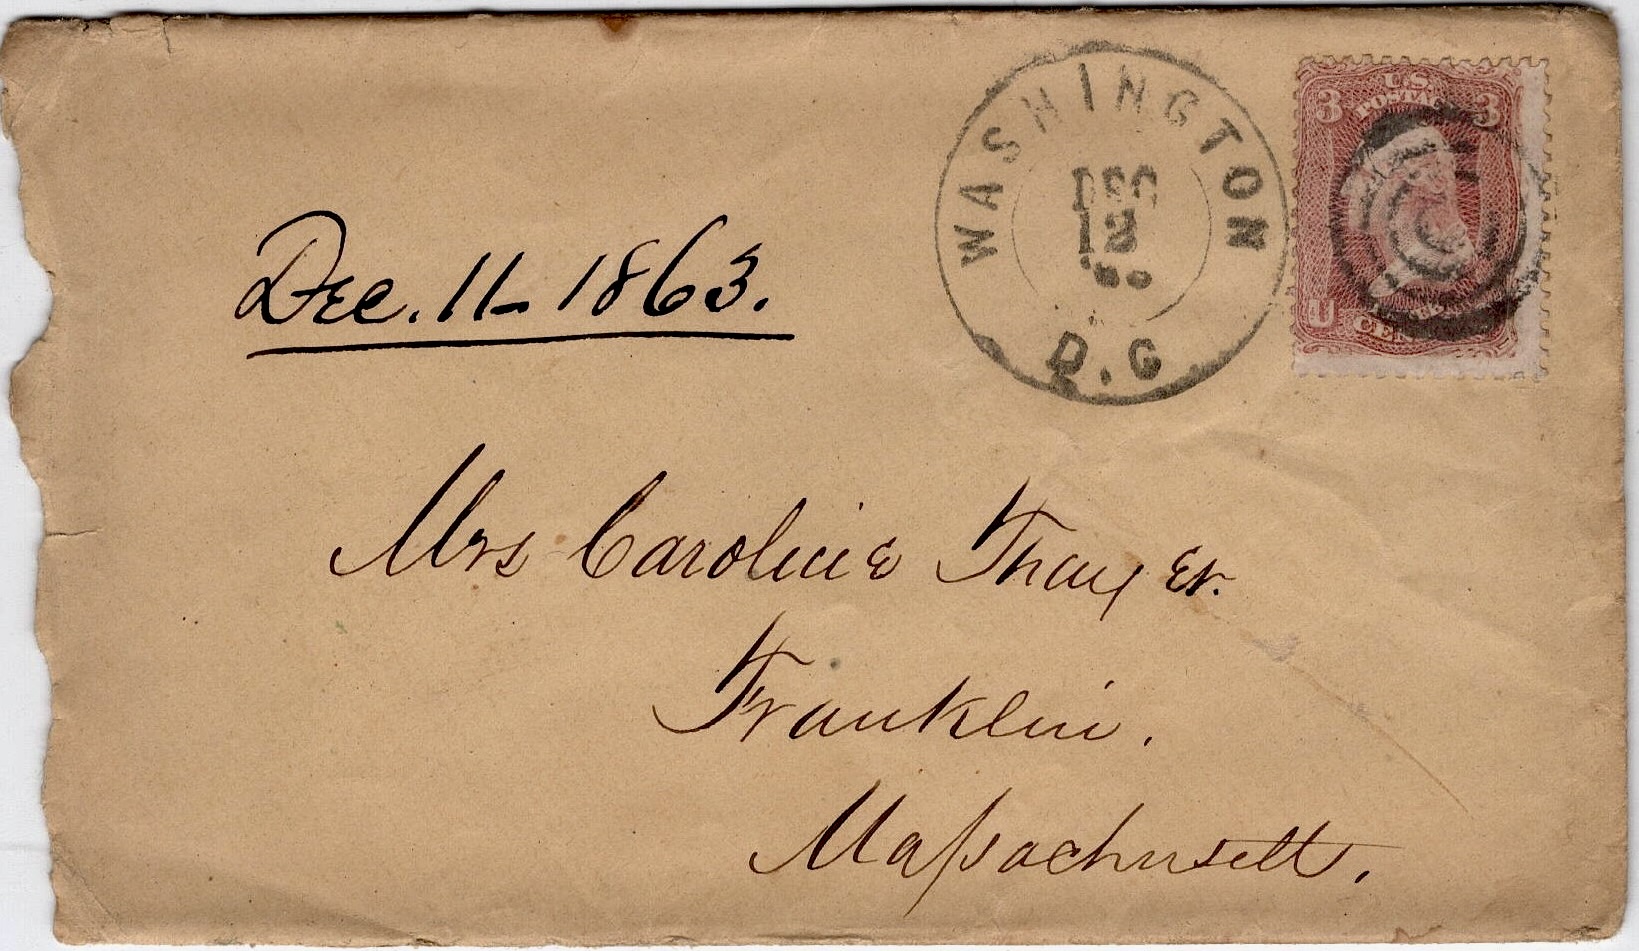 WASHINGTON
DEC
12
D.C
3 U.S. 3
POSTA
U
CEN
Dec. 11 - 1863.
Mrs Caroline Thayer.
Franklin.
Maſsachusetts.